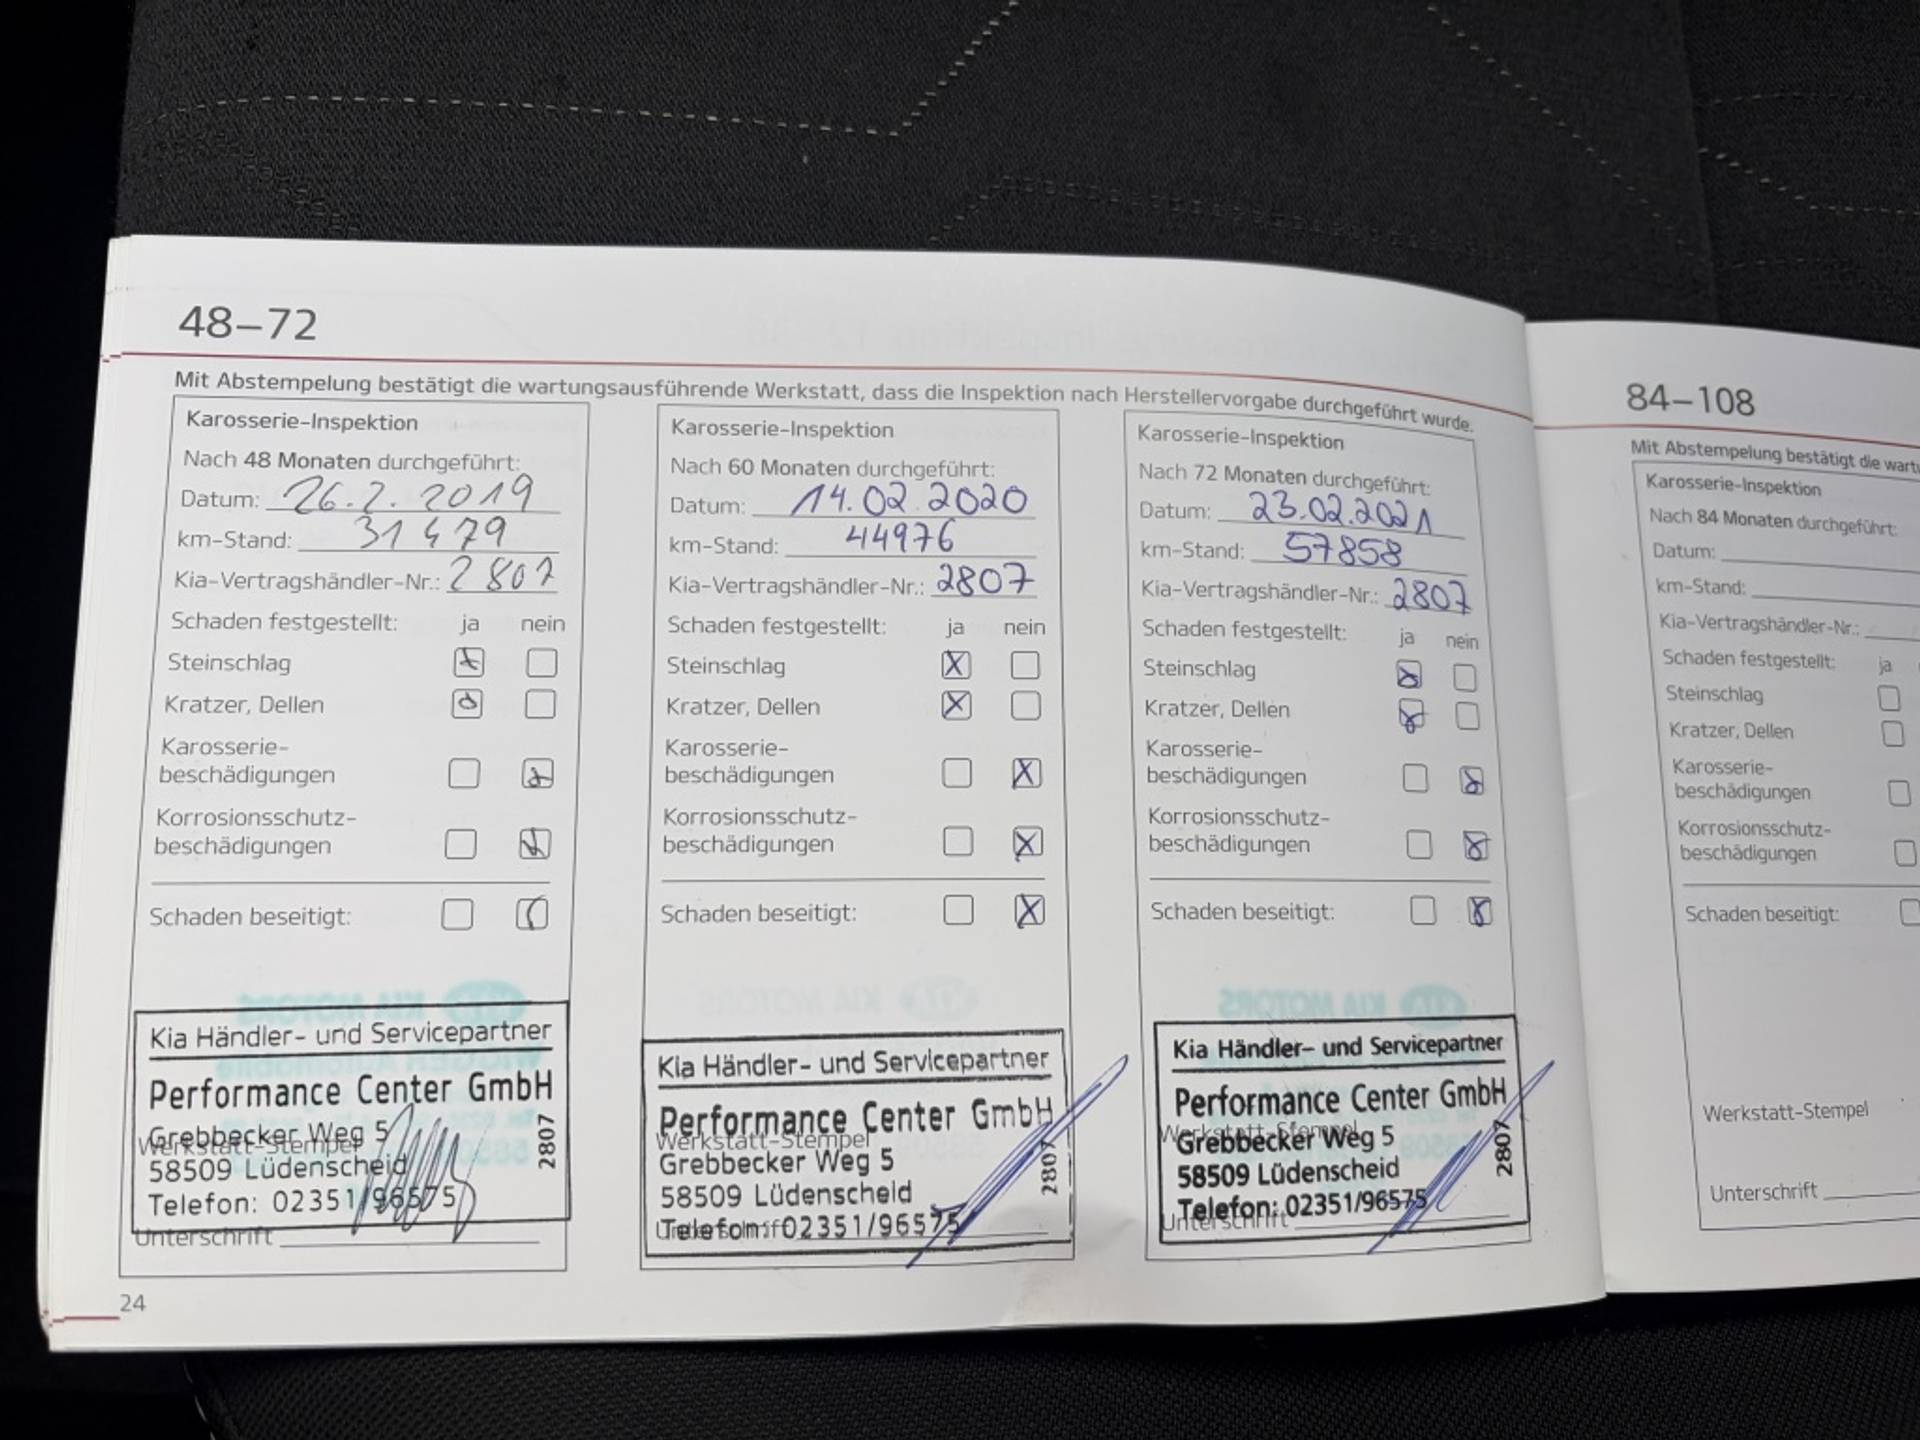 48–72
Mit Abstempelung bestätigt die wartungsausführende Werkstatt, dass die Inspektion nach Herstellervorgabe durchgeführt wurde.
Karosserie-Inspektion
Nach 48 Monaten durchgeführt:
Datum: 26.2.2019
km-Stand: 31479
Kia-Vertragshändler-Nr.: 2807
Schaden festgestellt: ja nein
Steinschlag
Kratzer, Dellen
Karosserie-
beschädigungen
Korrosionsschutz-
beschädigungen
Schaden beseitigt:
Kia Händler- und Servicepartner
Performance Center GmbH
Grebbecker Weg 5
Werkstatt-Stempel
58509 Lüdenscheid
Telefon: 02351/96575
2807
Unterschrift
24
Karosserie-Inspektion
Nach 60 Monaten durchgeführt:
Datum: 14.02.2020
km-Stand: 44976
Kia-Vertragshändler-Nr.: 2807
Schaden festgestellt: ja nein
Steinschlag
Kratzer, Dellen
Karosserie-
beschädigungen
Korrosionsschutz-
beschädigungen
Schaden beseitigt:
KIA MOTORS
Kia Händler- und Servicepartner
Performance Center GmbH
Werkstatt-Stempel
Grebbecker Weg 5
58509 Lüdenscheid
Telefon: 02351/96575
2807
Unterschrift
Karosserie-Inspektion
Nach 72 Monaten durchgeführt:
Datum: 23.02.2021
km-Stand: 57858
Kia-Vertragshändler-Nr.: 2807
Schaden festgestellt: ja nein
Steinschlag
Kratzer, Dellen
Karosserie-
beschädigungen
Korrosionsschutz-
beschädigungen
Schaden beseitigt:
KIA MOTORS
Kia Händler- und Servicepartner
Performance Center GmbH
Werkstatt-Stempel
Grebbecker Weg 5
58509 Lüdenscheid
Telefon: 02351/96575
2807
Unterschrift
84–108
Mit Abstempelung bestätigt die
Karosserie-Inspektion
Nach 84 Monaten durchgeführt:
Datum:
km-Stand:
Kia-Vertragshändler-Nr.:
Schaden festgestellt: ja
Steinschlag
Kratzer, Dellen
Karosserie-
beschädigungen
Korrosionsschutz-
beschädigungen
Schaden beseitigt:
Werkstatt-Stempel
Unterschrift